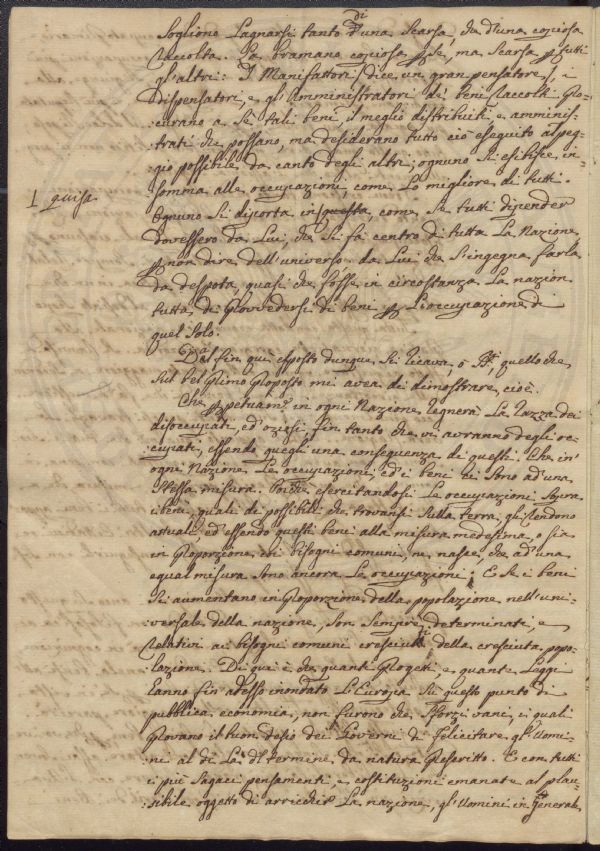 Sogliono Lagnarsi tanto di d'una scarsa, che d'una copiosa
raccolta. La bramano copiosa p se, ma scarsa p tutti
gl'altri: I Manifattori (dice un gran pensatore), i
dispensatori, e gl'Amministratori de' beni raccolti pro-
:curano a se tali beni, il meglio distribuiti, e amminis-
:trati che possano, ma desiderano tutto ciò eseguito al peg-
gio possibile da canto degli altri; ognuno si esibisce in-
somma alle occupazioni, come Lo migliore di tutti.
I guisa
Ognuno si diporta in questa, come se tutti dipender
dovessero da Lui, che si fà centro di tutta La Nazione,
p non dire dell'universo da Lui che s'ingegna farla
da despota, quasi che fosse in circostanza La nazion
tutta di provvedersi di beni p L'occupazione di
quel solo.
Dal fin quì esposto dunque si ricava, o quello che
sul bel primo proposto mi avea di dimostrare, cioè.
Che ppetuam.e in ogni Nazione regnerà La razza dei
disoccupati, ed'oziosi, fin tanto che vi avranno degli oc-
:cupati, essendo quegli una conseguenza di questi. Che in
ogni Nazione Le occupazioni, ed'i beni vi sono ad'una
stessa misura. Poichè esercitandosi Le occupazioni sovra
i beni, quali di possibili che trovansi sulla terra, gli rendono
attuali, ed'essendo questi beni alla misura medesima, o sia
in proporzione coi bisogni comuni, ne nasce, che ad'una
egual misura sono ancora Le occupazioni. E se i beni
si aumentano in proporzione della popolazione nell'uni-
:versale della nazione, son sempre determinati, e
relativi ai bisogni comuni cresciuti della cresciuta popo-
lazione. Di qui è che quanti progetti, e quante Leggi
hanno fin'adesso inondato L'Europa su questo punto di
pubblica economia, non furono che sforzi vani, i quali
provano il buon desio dei Governi di felicitare gl'Uomi-
ni al di Là del termine da natura prescritto. E con tutti
i più sagaci pensamenti, e costituzioni emanate al plau-
:sibile oggetto di arricchir La nazione, gl'Uomini in generale